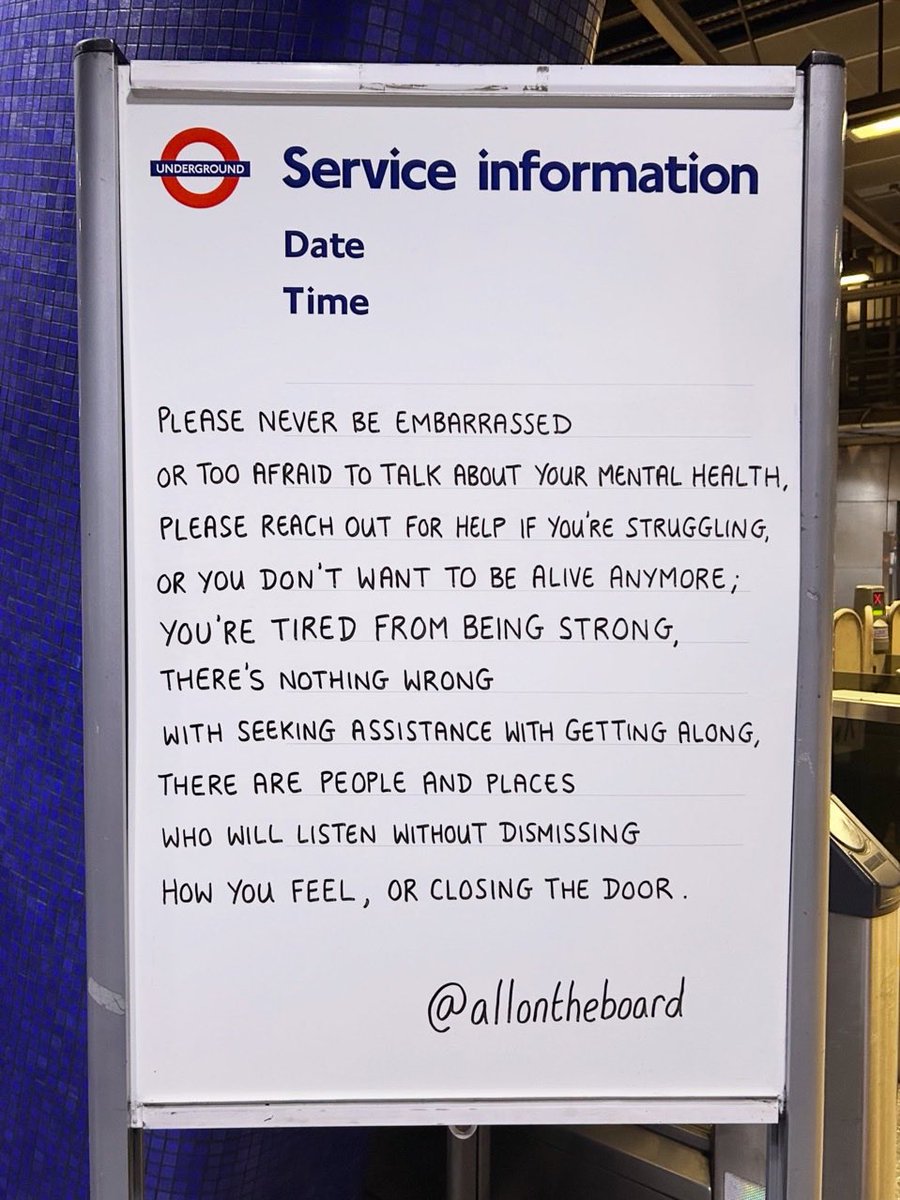 UNDERGROUND
Service information
Date
Time
PLEASE NEVER BE EMBARRASSED
OR TOO AFRAID TO TALK ABOUT YOUR MENTAL HEALTH,
PLEASE REACH OUT FOR HELP IF YOU'RE STRUGGLING,
OR YOU DON'T WANT TO BE ALIVE ANYMORE;
YOU'RE TIRED FROM BEING STRONG,
THERE'S NOTHING WRONG
WITH SEEKING ASSISTANCE WITH GETTING ALONG,
THERE ARE PEOPLE AND PLACES
WHO WILL LISTEN WITHOUT DISMISSING
HOW YOU FEEL, OR CLOSING THE DOOR.
@allontheboard